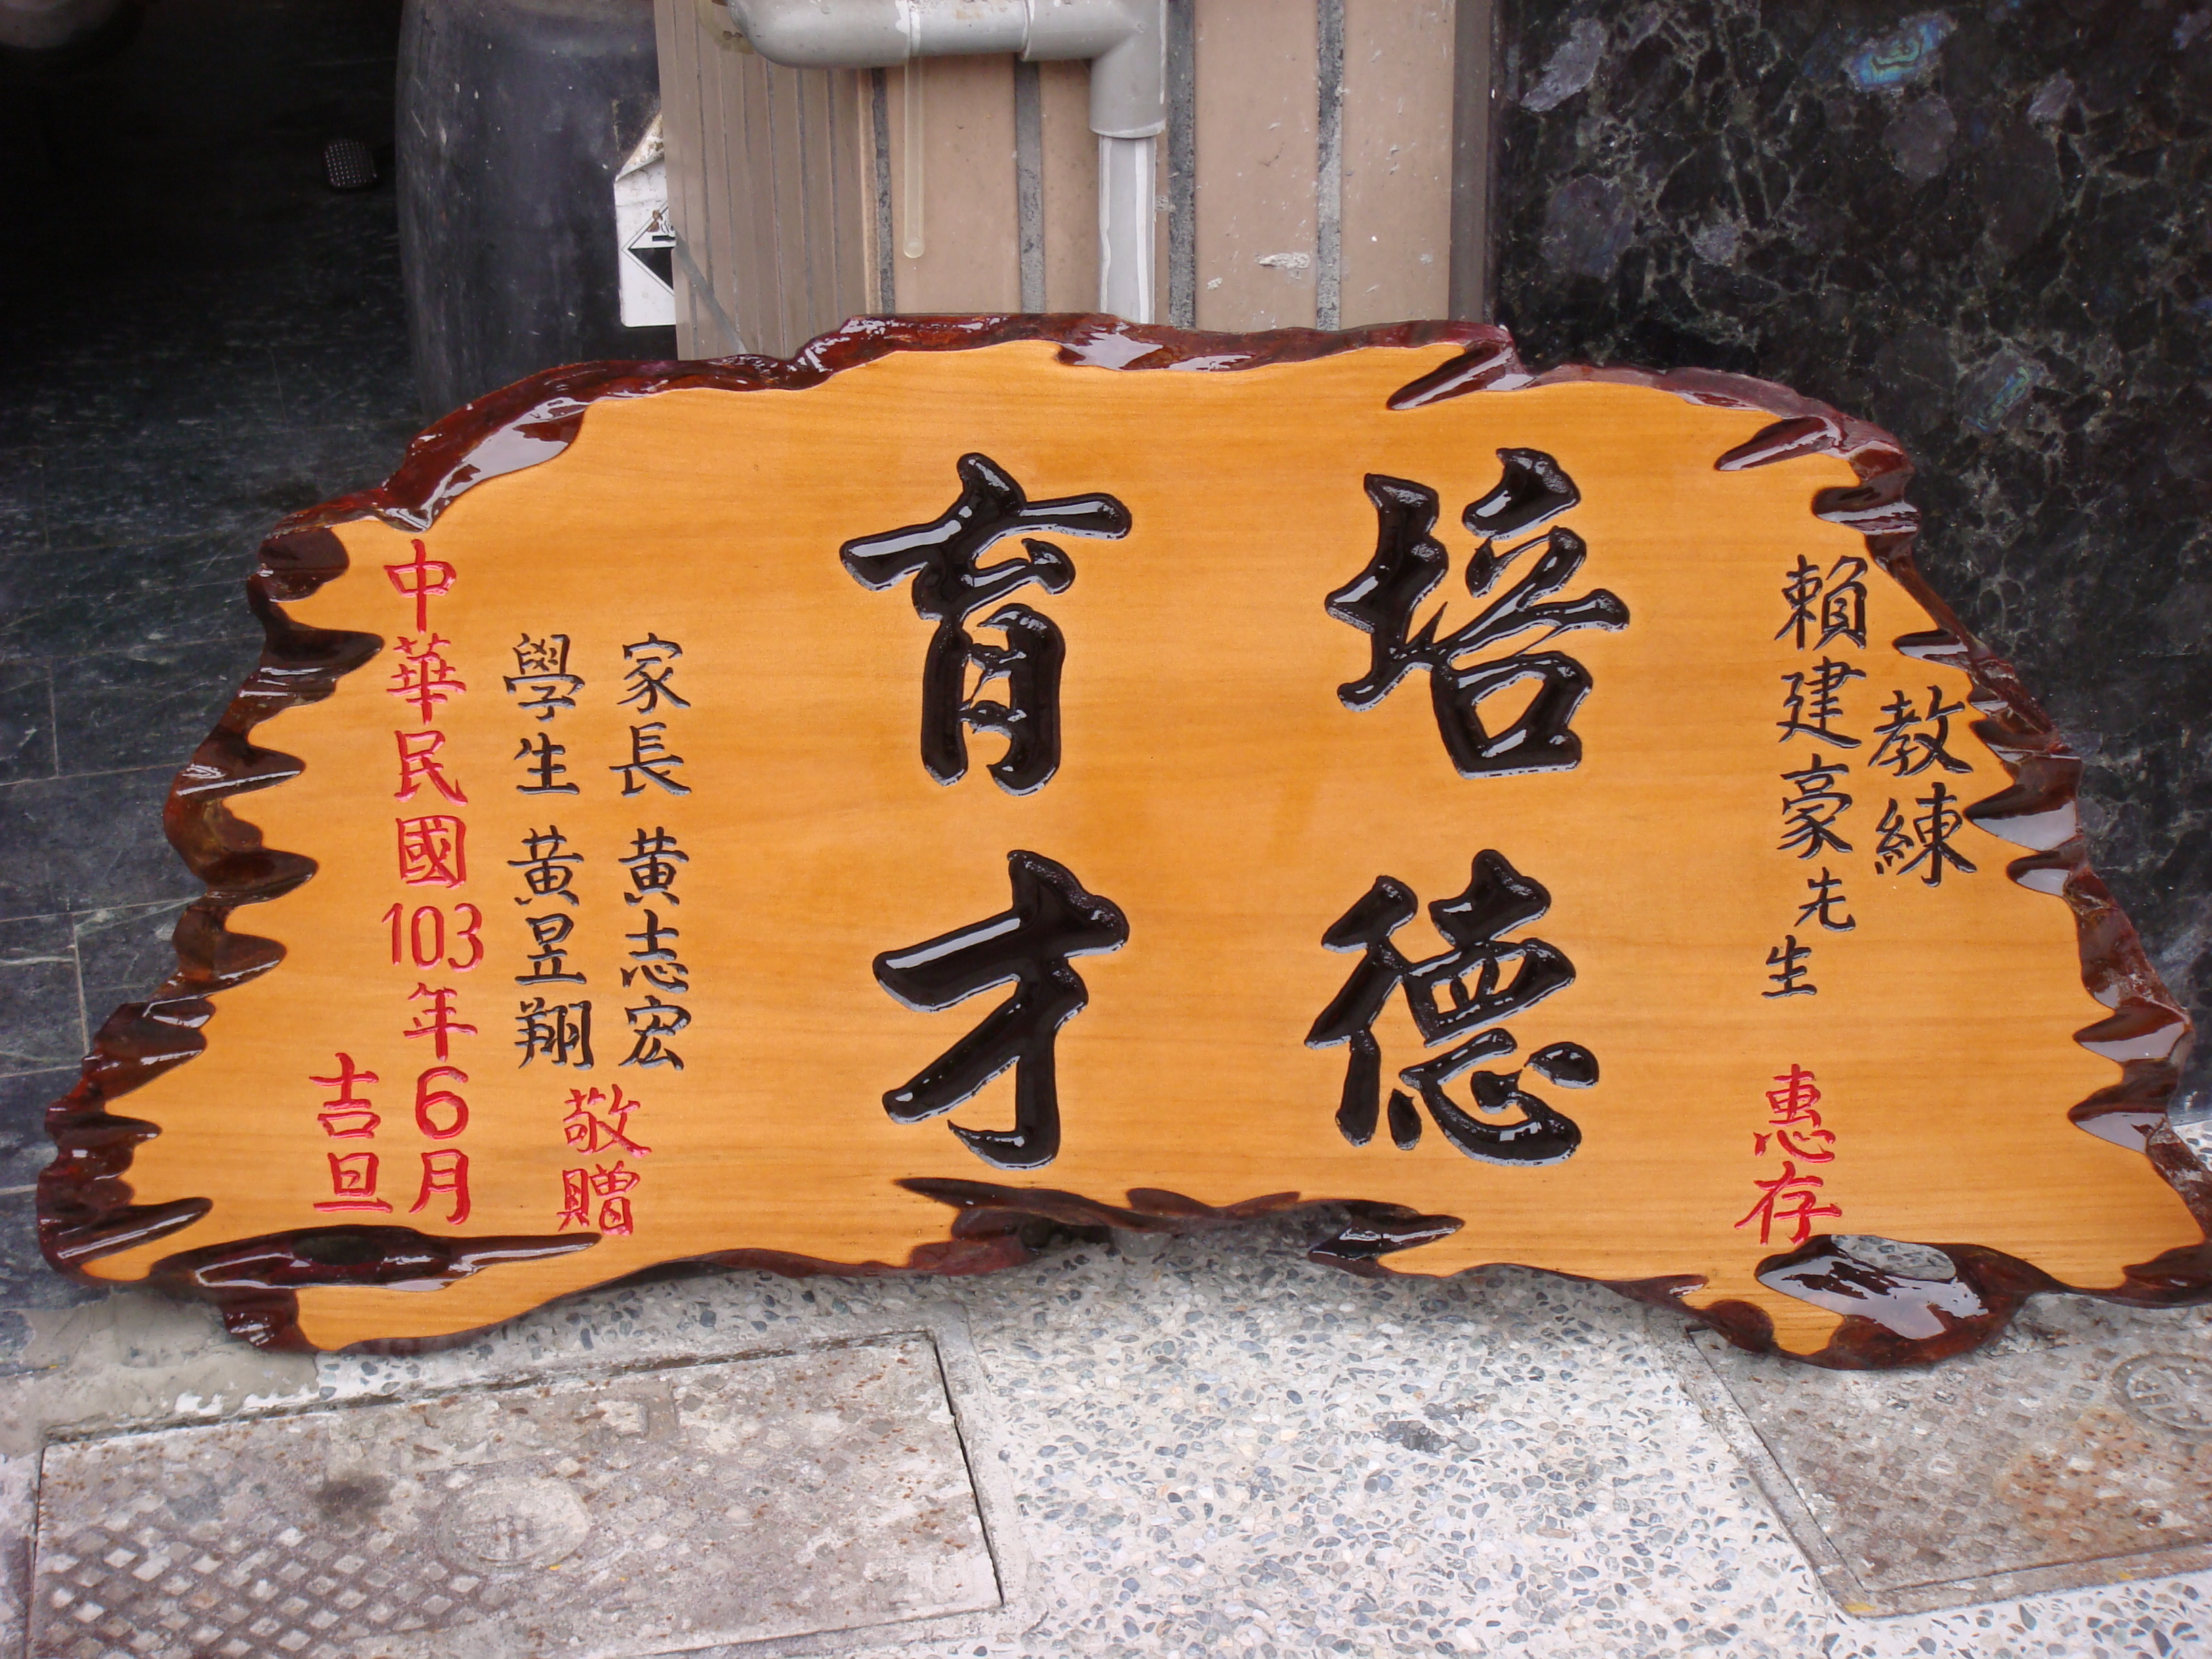 教練
賴建豪先生 惠存
培德
育才
家長 黃志宏
學生 黃昱翔
敬贈
中華民國103年6月
吉旦